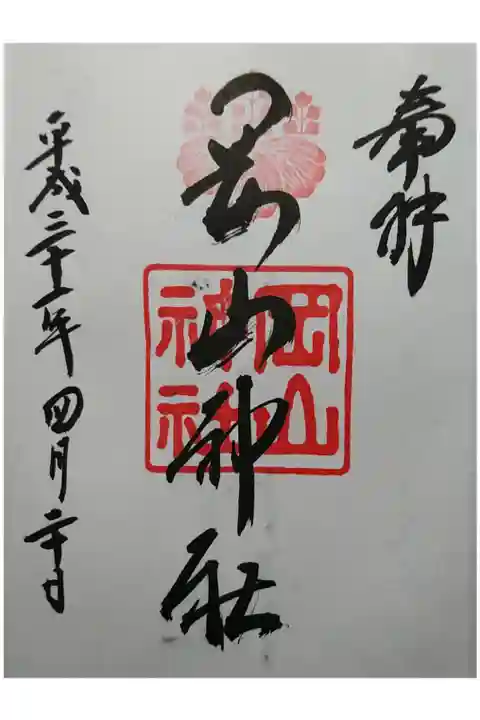 奉拝
岡山神社
岡山
神社
平成三十一年四月二十日